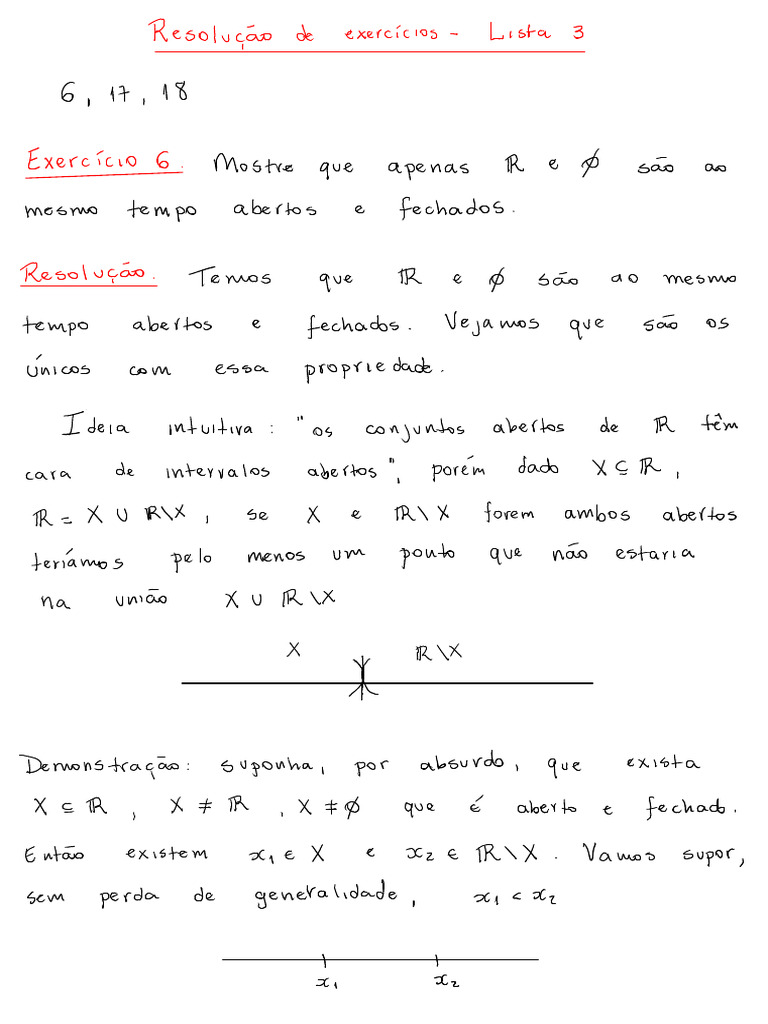 Resolução de exercícios - Lista 3
6, 17, 18
Exercício 6. Mostre que apenas ℝ e ∅ são ao
mesmo tempo abertos e fechados.
Resolução. Temos que ℝ e ∅ são ao mesmo
tempo abertos e fechados. Vejamos que são os
únicos com essa propriedade.
Ideia intuitiva: "os conjuntos abertos de ℝ têm
cara de intervalos abertos", porém dado X ⊆ ℝ,
ℝ = X ∪ ℝ\X, se X e ℝ\X forem ambos abertos
teríamos pelo menos um ponto que não estaria
na união X ∪ ℝ\X
X ℝ\X
Demonstração: suponha, por absurdo, que exista
X ⊆ ℝ, X ≠ ℝ, X ≠ ∅ que é aberto e fechado.
Então existem x₁ ∈ X e x₂ ∈ ℝ\X. Vamos supor,
sem perda de generalidade, x₁ < x₂
x₁ x₂